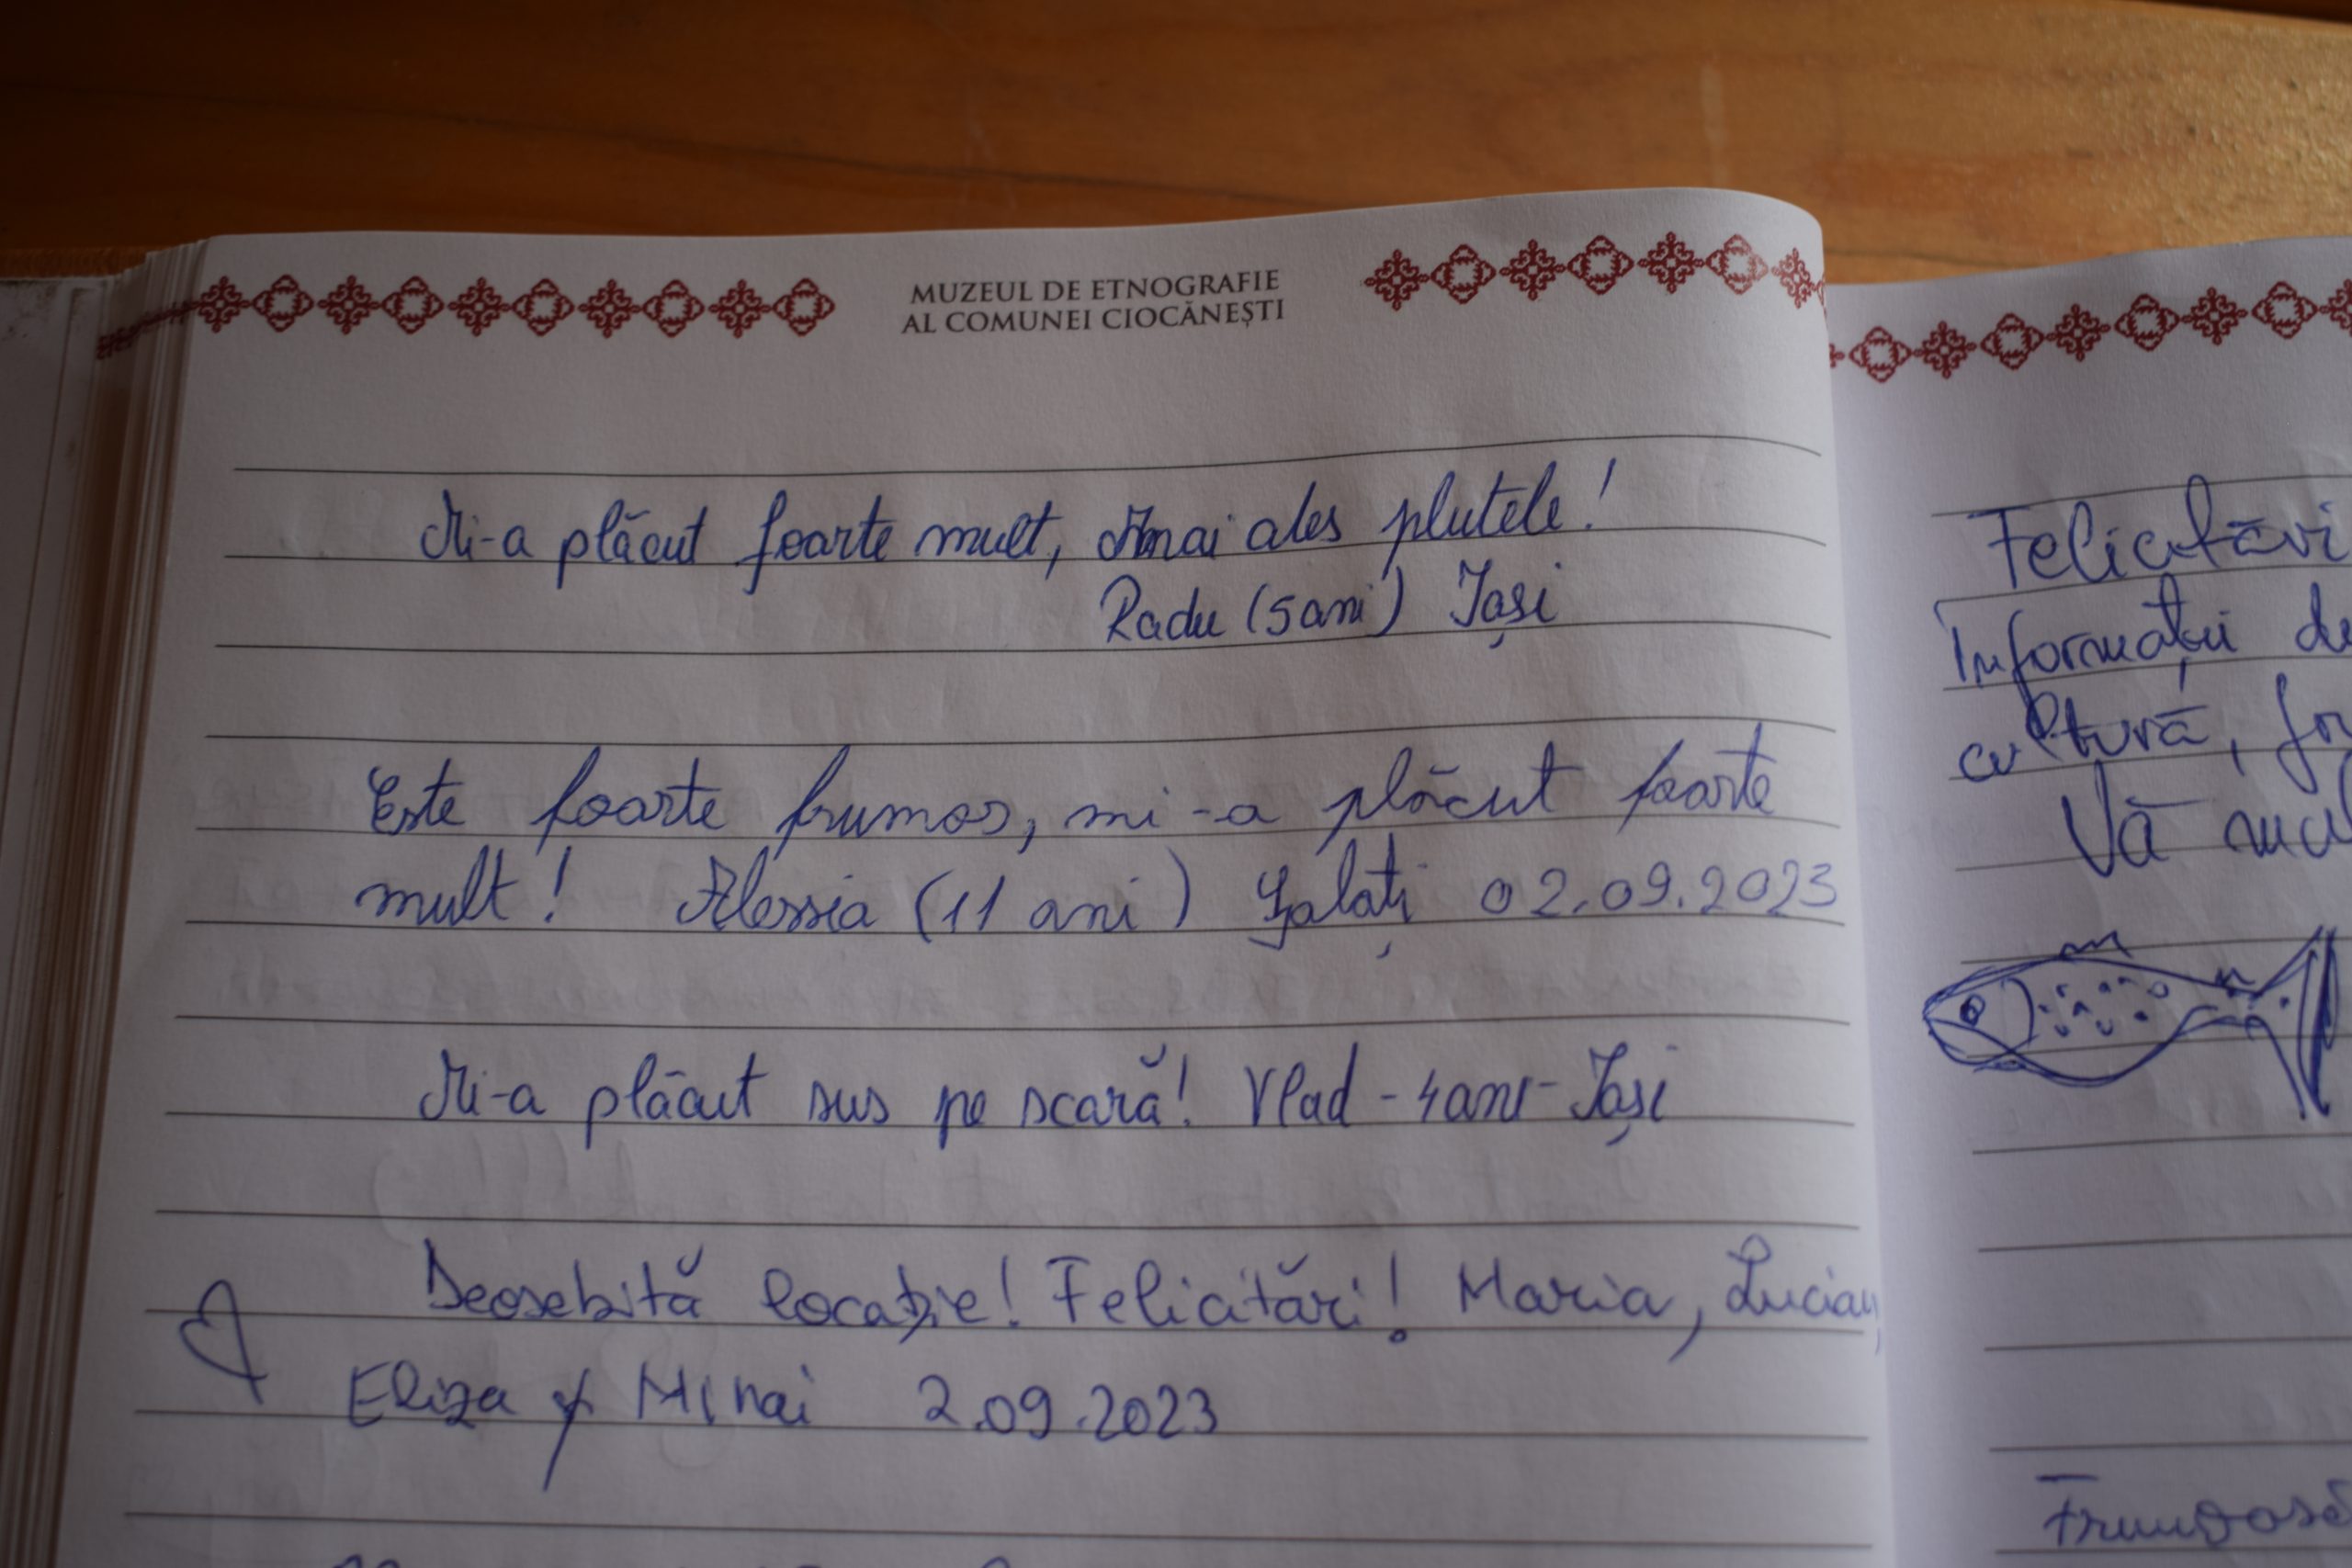 MUZEUL DE ETNOGRAFIE
AL COMUNEI CIOCĂNEȘTI
Mi-a plăcut foarte mult, mai ales plutele!
Radu (5 ani) Iași
Este foarte frumos, mi-a plăcut foarte
mult! Alessia (11 ani) Galați 02.09.2023
Mi-a plăcut sus pe scară! Vlad - 4 ani - Iași
Deosebită locație! Felicitări! Maria, Lucian,
Eliza și Mihai 2.09.2023
Felicitări
Informații
cultură,
Vă
Frumoasă